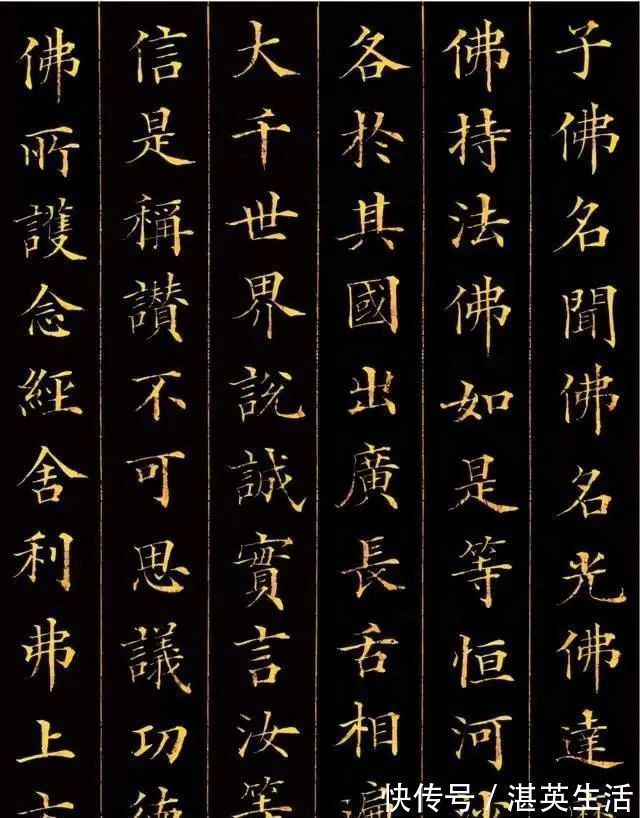 子佛名聞佛名光佛達
佛持法佛如是等恒河
各於其國出廣長舌相
大千世界説誠實言汝等
信是稱讃不可思議功德
佛所護念經舍利弗上
快传号/湛英生活